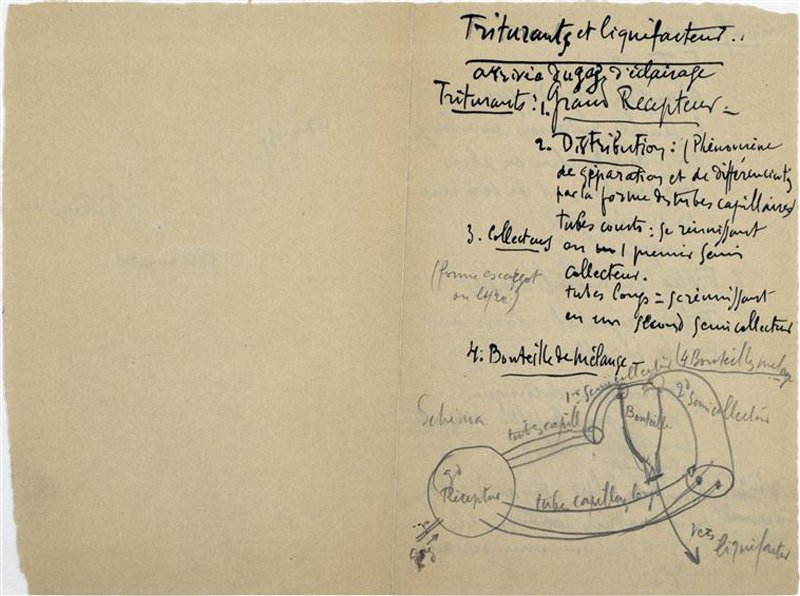 Triturants et liquifacteur..
arrivée du gaz d'éclairage
Triturants : 1. Grand Récepteur -
2. Distribution : (Phénomène
de séparation et de différenciation
par la forme des tubes capillaires
tubes courts : se réunissant
3. Collecteurs
en un 1 premier semi
collecteur.
(forme escargot
ou lyre)
tubes longs = se réunissant
en un second semi collecteur
4. Bouteille de mélange
(4 Bouteilles mélange
1er semi collecteur
2d semi collecteur
Schéma
tubes capill
Bouteille
gd
Récepteur
tubes capillaires long
gaz
vers
liquifacteur